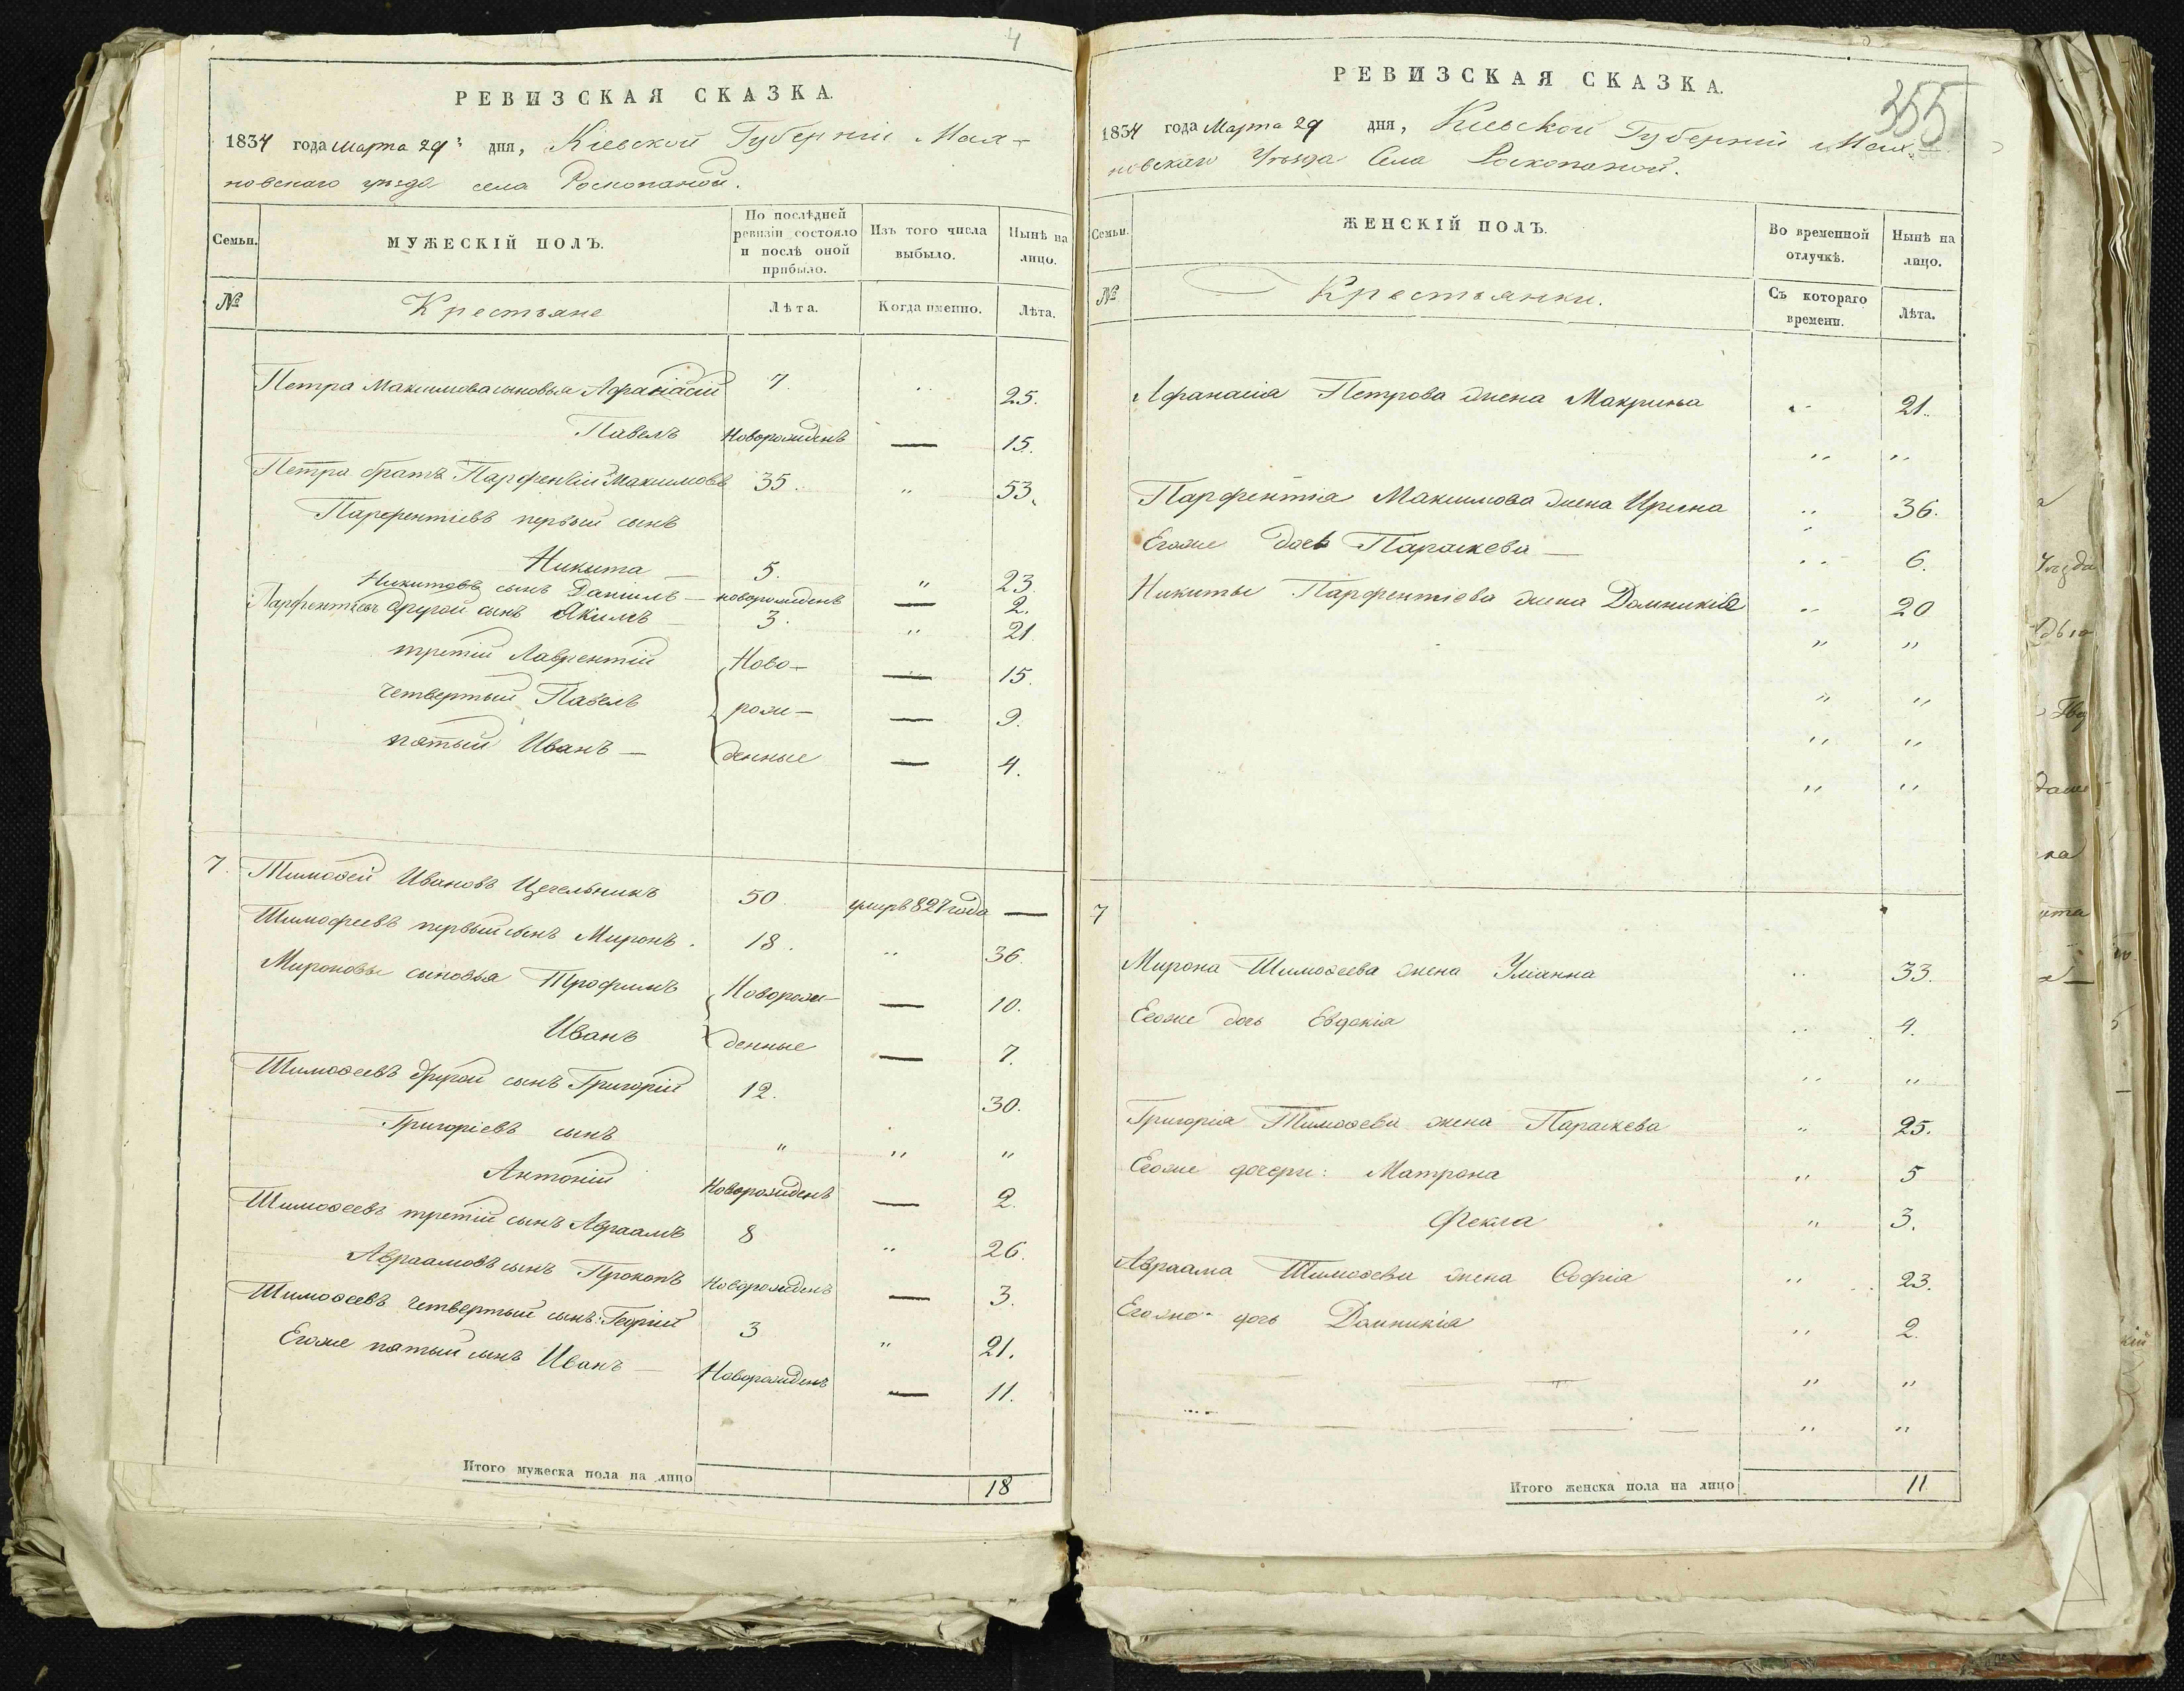 4
РЕВИЗСКАЯ СКАЗКА.
1834 года Марта 29 дня, Кіевской Губерніи Мах-
новскаго уѣзда села Роскопаной.
Семьи.
МУЖЕСКІЙ ПОЛЪ.
По послѣдней ревизіи состояло и послѣ оной прибыло.
Изъ того числа выбыло.
Нынѣ на лицо.
№
Крестьяне
Лѣта.
Когда именно.
Лѣта.
Петра Максимова сыновья Афанасій 7. " 25.
Павелъ Новорожденъ — 15.
Петра братъ Парфентій Максимовъ 35. " 53.
Парфентіевъ первый сынъ
Никита — 5. " 23.
Никитовъ сынъ Даніилъ — новорожденъ — 2.
Парфентіевъ другой сынъ Якимъ — 3. " 21.
третій Лаврентій Ново- — 15.
четвертый Павелъ рож- — 9.
пятый Иванъ — денные — 4.
7. Тимоѳей Ивановъ Цегельникъ 50. умеръ 827 года —
Тимофеевъ первый сынъ Миронъ. 18. " 36.
Мироновы сыновья Трофимъ Новорож- — 10.
Иванъ денные — 7.
Тимоѳеевъ другой сынъ Григорій 12. 30.
Григоріевъ сынъ " " "
Антоній Новорожденъ — 2.
Тимоѳеевъ третій сынъ Авраамъ 8 " 26.
Авраамовъ сынъ Прокопъ Новорожденъ — 3.
Тимоѳеевъ четвертый сынъ: Георгій 3 " 21.
Егоже пятый сынъ Иванъ — Новорожденъ — 11.
Итого мужеска пола на лицо 18
355
РЕВИЗСКАЯ СКАЗКА.
1834 года Марта 29 дня, Кіевской Губерніи Мах-
новскаго Уѣзда Села Роскопаной.
Семьи.
ЖЕНСКІЙ ПОЛЪ.
Во временной отлучкѣ.
Нынѣ на лицо.
№
Крестьянки.
Съ котораго времени.
Лѣта.
Афанасія Петрова жена Макрина " 21.
" "
Парфентія Максимова жена Ирина " 36.
Егоже дочь Параскева — " 6.
Никиты Парфентіева жена Домникія " 20
" "
" "
" "
" "
7
Мирона Тимоѳеева жена Уліанна " 33.
Егоже дочь Евдокія " 4.
" "
Григорія Тимоѳеева жена Параскева " 25.
Егоже дочери: Матрона " 5
Фекла " 3.
Авраама Тимоѳеева жена Софія " 23.
Егоже дочь Домникія " 2.
" "
" "
Итого женска пола на лицо 11